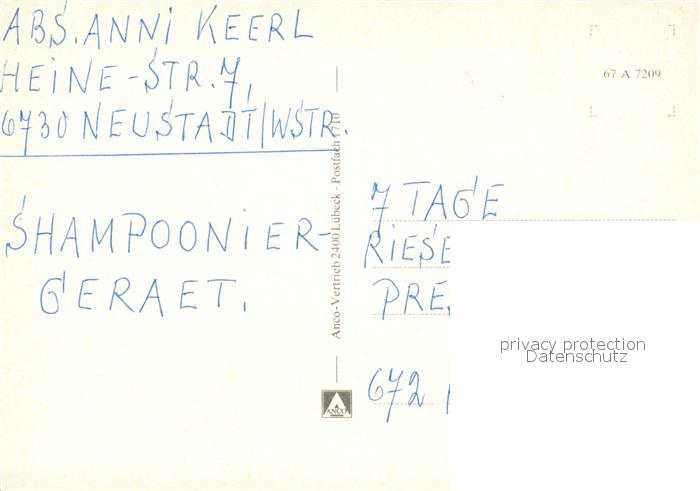 ABS. ANNI KEERL
HEINE-STR. 7,
6730 NEUSTADT/WSTR.
SHAMPOONIER-
GERAET.
Anco-Vertrieb 2400 Lübeck - Postfach 1710
ANCO
67 A 7209
7 TAGE
RIESE
PRE
672
privacy protection
Datenschutz